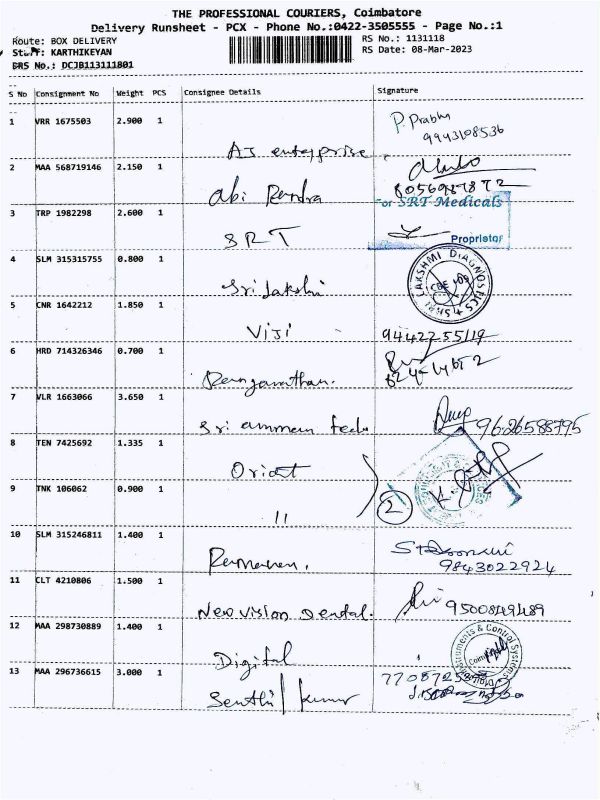 THE PROFESSIONAL COURIERS, Coimbatore
Delivery Runsheet - PCX - Phone No.:0422-3505555 - Page No.:1
Route: BOX DELIVERY RS No.: 1131118
Staff: KARTHIKEYAN RS Date: 08-Mar-2023
DRS No.: DCJB113111801
S No Consignment No Weight PCS Consignee Details Signature
1 VRR 1675503 2.900 1 P. Prabhu
9943108536
AJ enterprise
2 MAA 568719146 2.150 1
Abi Rendra
3 TRP 1982298 2.600 1 For SRT Medicals
SRT Proprietor
4 SLM 315315755 0.800 1 LAKSHMI DIAGNOSTICS
Sri Lakshmi
5 CNR 1642212 1.850 1
Viji 9442255119
6 HRD 714326346 0.700 1
Ranganathan.
7 VLR 1663066 3.650 1
Sri amman 9626588795
8 TEN 7425692 1.335 1
Orient
9 TNK 106062 0.900 1 2
11
10 SLM 315246811 1.400 1
9843022924
11 CLT 4210806 1.500 1
New vision Dental.
12 MAA 298730889 1.400 1 Instruments & Control Systems
Digital
13 MAA 296736615 3.000 1
Senthil Kumar